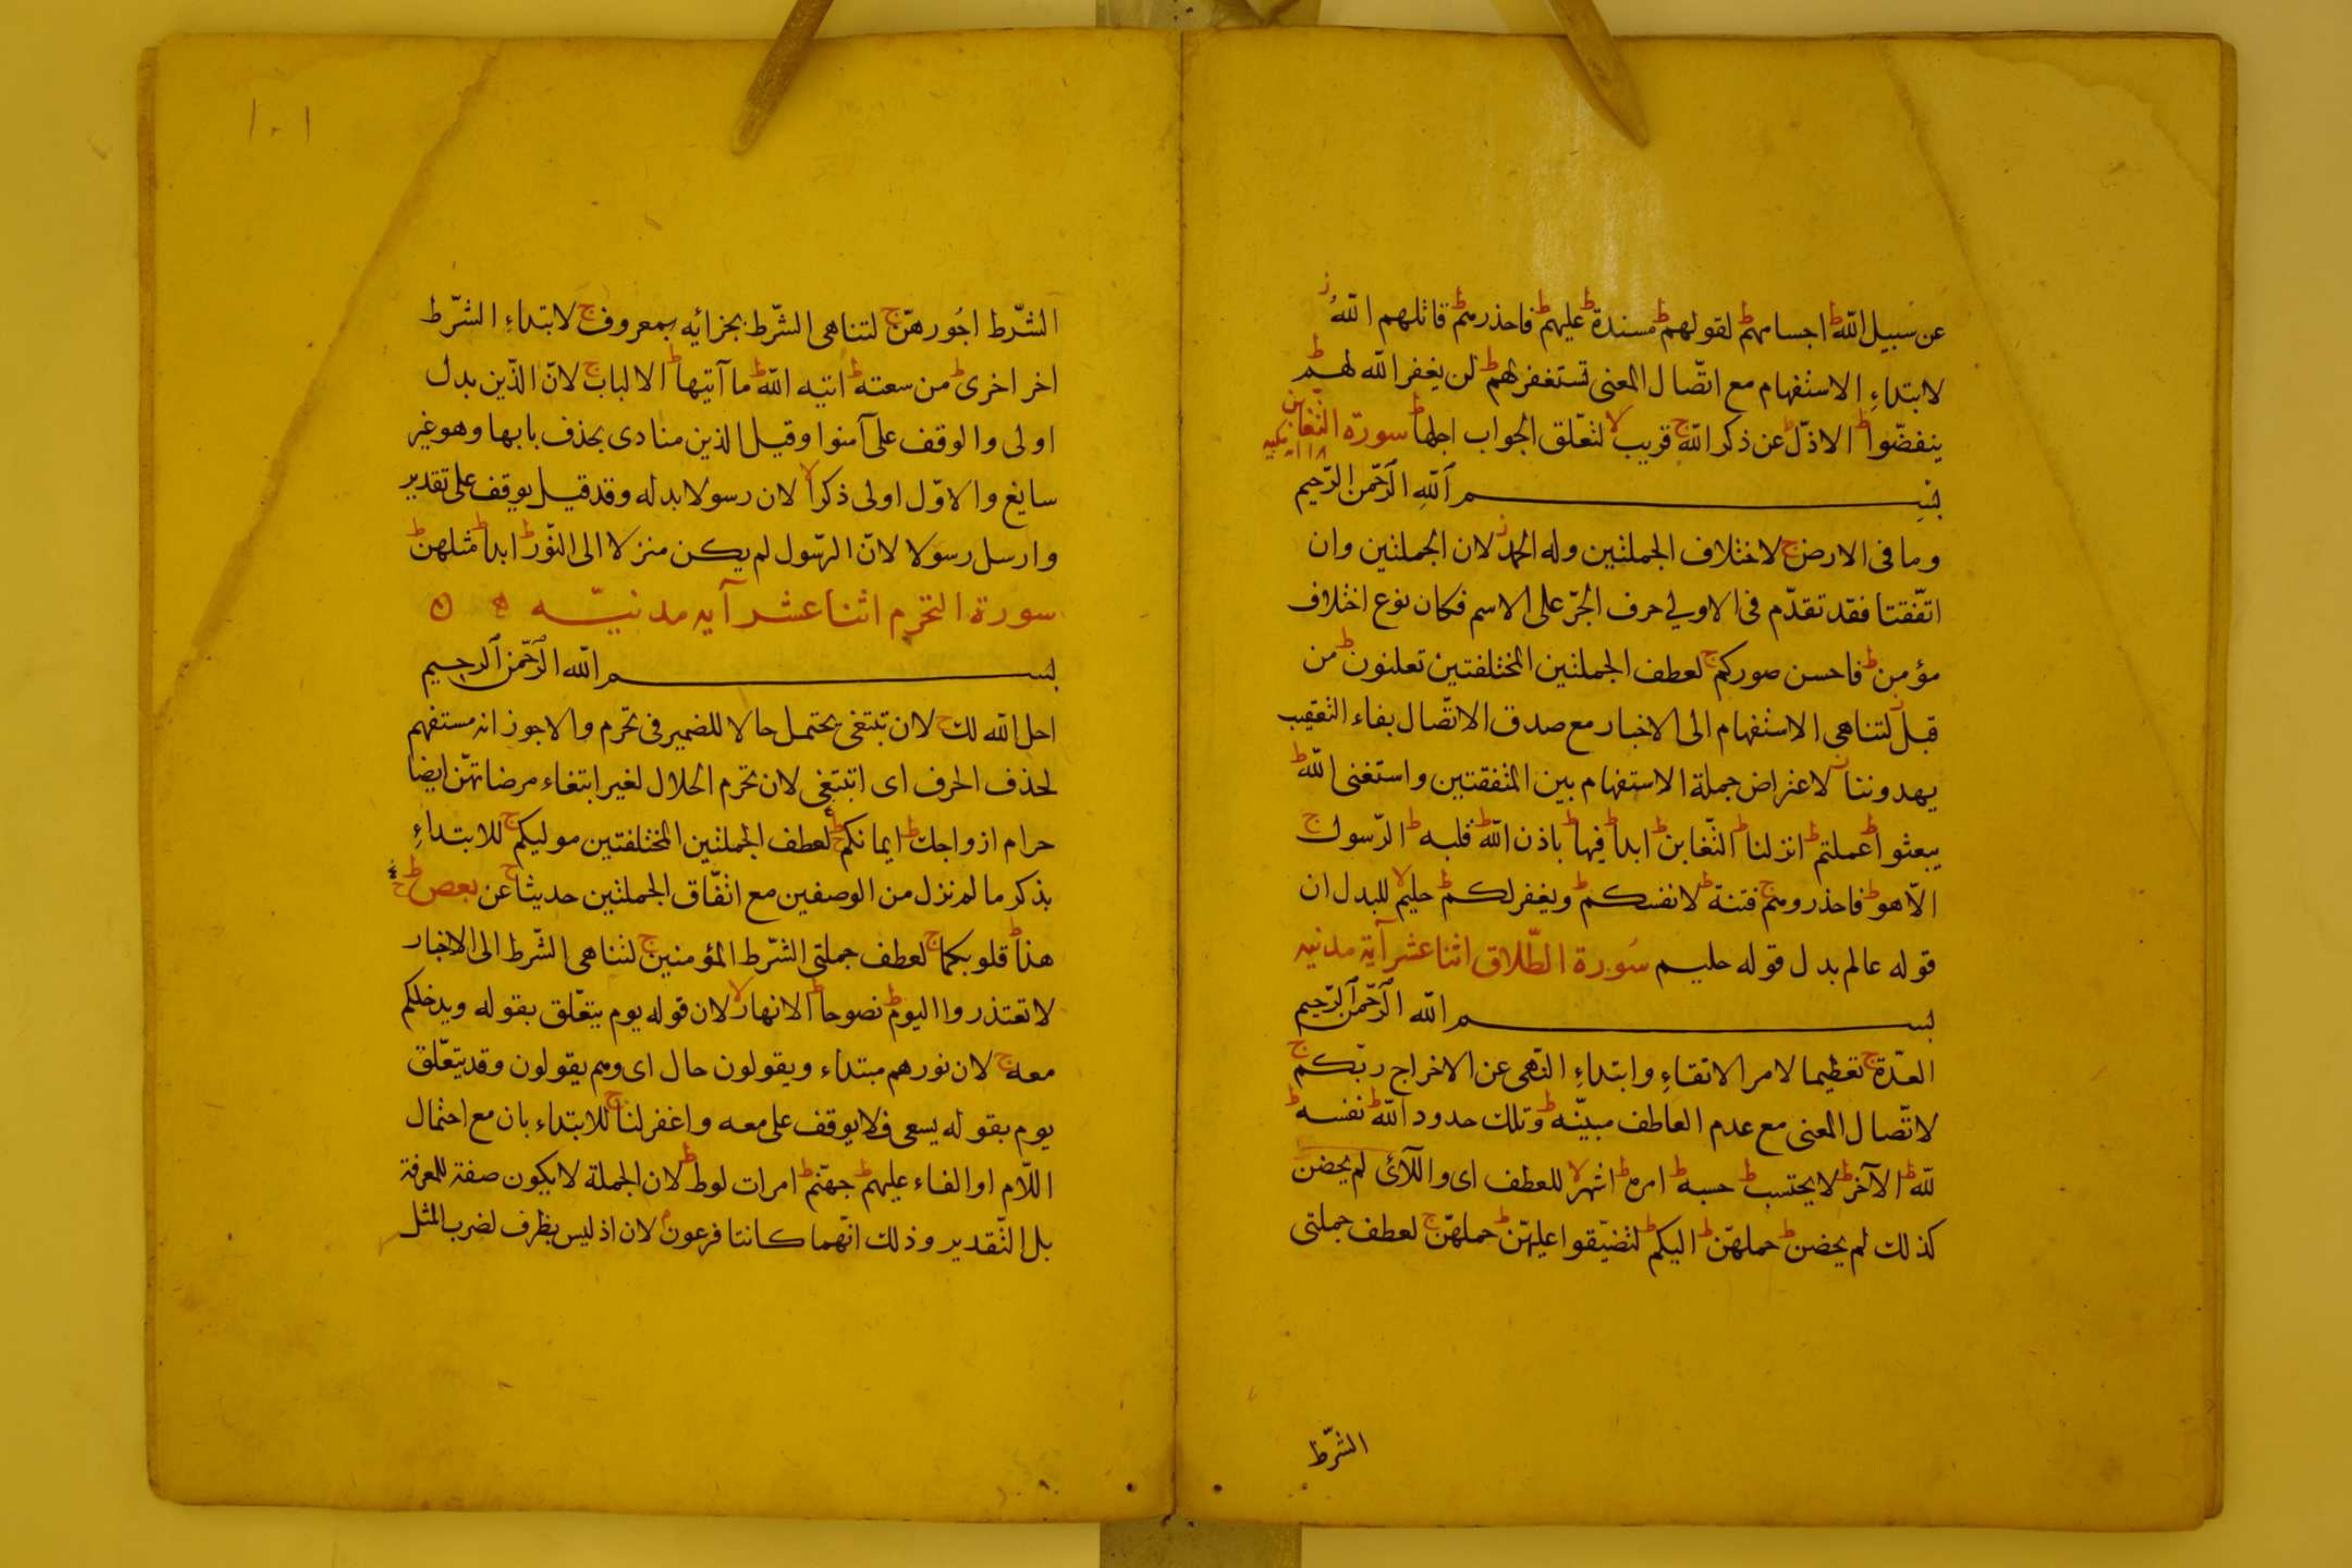 عن سبيل الله ط اجسامهم ط لقولهم ط مسندة ط عليهم ط فاحذرهم ط قاتلهم الله ز
لابتداء الاستفهام مع اتّصال المعنى تستغفر لهم ط لن يغفر الله لهم ط
ينفضّوا ط الاذلّ ط عن ذكر الله ج قريب لا لتعّلق الجواب اجلها ط سورة التغابن
١٨ آية مكيه
بسم الله الرّحمن الرّحيم
وما فى الارض ج لاختلاف الجملتين وله الحمد ز لان الجملتين وان
اتّفقتا فقد تقدّم فى الاولي حرف الجرّ على الاسم فكان نوع اختلاف
مؤمن ط فاحسن صوركم ج لعطف الجملتين المختلفتين تعلنون ط من
قبل ز لتناهى الاستفهام الى الاخبار مع صدق الاتّصال بفاء التعقيب
يهدوننا ز لاعتراض جملة الاستفهام بين المتفقتين واستغنى الله ط
يبعثوا ط عملتم ط انزلنا ط التّغابن ط ابدا ط فيها ط باذن الله ط قلبه ط الرّسول ج
الّا هو ط فاحذروهم ج فتنة ط لانفسكم ط ويغفر لكم ط حليم لا للبدل ان
قوله عالم بدل قوله حليم سورة الطّلاق اثنا عشر آية مدنيه
بسم الله الرّحمن الرّحيم
العدّة ج تعظيما لامر الاتقاء وابتداء النّهى عن الاخراج ربّكم ج
لاتّصال المعنى مع عدم العاطف مبيّنه ط وتلك حدود الله ط نفسه ط
لله ط الآخر ط لا يحتسب ط حسبه ط امره ط اشهر لا للعطف اى واللّآئى لم يحضن
كذلك لم يحضن ط حملهنّ ط اليكم ط لتضيّقوا عليهنّ ط حملهنّ ج لعطف جملتى
الشّرط
١٠١
الشّرط اجُورهنّ ج لتناهى الشّرط بجزائيه بمعروف ج لابتداء الشّرط
اخر اخرى ط من سعته ط اتيه الله ط ما آتيها ط الالباب ج لانّ الذّين بدل
اولى والوقف على آمنوا وقيل الذين منادى بحذف بابها وهو غير
سايغ والاوّل اولى ذكرا لا لان رسولا بدله وقد قيل يوقف على تقدير
وارسل رسولا لانّ الرّسول لم يكن منزلا الى النّور ط ابدا ط مثلهن ط
سورة التحرم اثنا عشر آيه مدنيّه
بسم الله الرّحمن الرحيم
احل الله لك ج لان تبتغى يحتمل حالا للضمير فى تحرم والاجوز انه مستفهم
لحذف الحرف اى اتبتغى لان تحرم الحلال لغير ابتغاء مرضاتهنّ ايضا
حرام ازواجك ط ايمانكم ج لعطف الجملتين المختلفتين موليكم ج للابتداء
بذكر ما لم نزل من الوصفين مع اتّفاق الجملتين حديثا ج عن بعض ط
هذا ط قلوبكما ج لعطف جملتى الشّرط المؤمنين ج لتناهى الشّرط الى الاخبار
لا تعتذروا اليوم ط نصوحا ط الانهار لا لان قوله يوم يتعّلق بقوله ويدخلكم
معه ج لان نورهم مبتداء ويقولون حال اى وهم يقولون وقد يتعّلق
يوم بقوله يسعى فلا يوقف على معه واغفر لنا ج للابتداء بان مع احتمال
اللّام او الفاء عليهم ط جهنّم ط امرات لوط ط لان الجملة لا يكون صفة للمعرفة
بل التّقدير وذلك انّهما كانتا فرعون م لان اذ ليس بظرف لضرب المثل